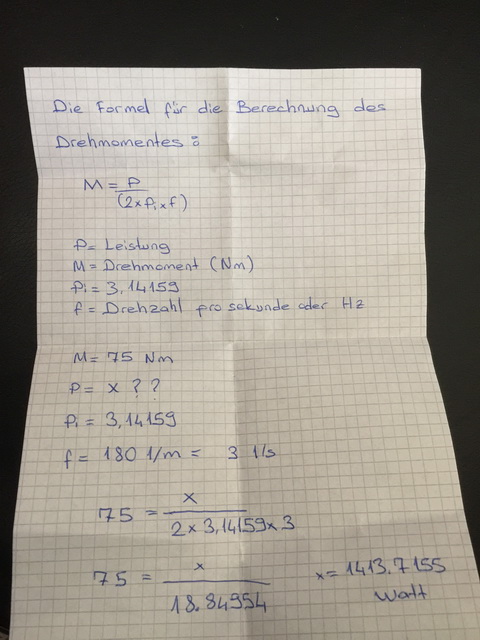 Die Formel für die Berechnung des
Drehmomentes :
M = P
(2 x Pi x f)
P = Leistung
M = Drehmoment (Nm)
Pi = 3,14159
f = Drehzahl pro sekunde oder Hz
M = 75 Nm
P = x ? ?
Pi = 3,14159
f = 180 1/m = 3 1/s
75 = x
2 x 3,14159 x 3
75 = x
18.84954
x = 1413.7155
Watt